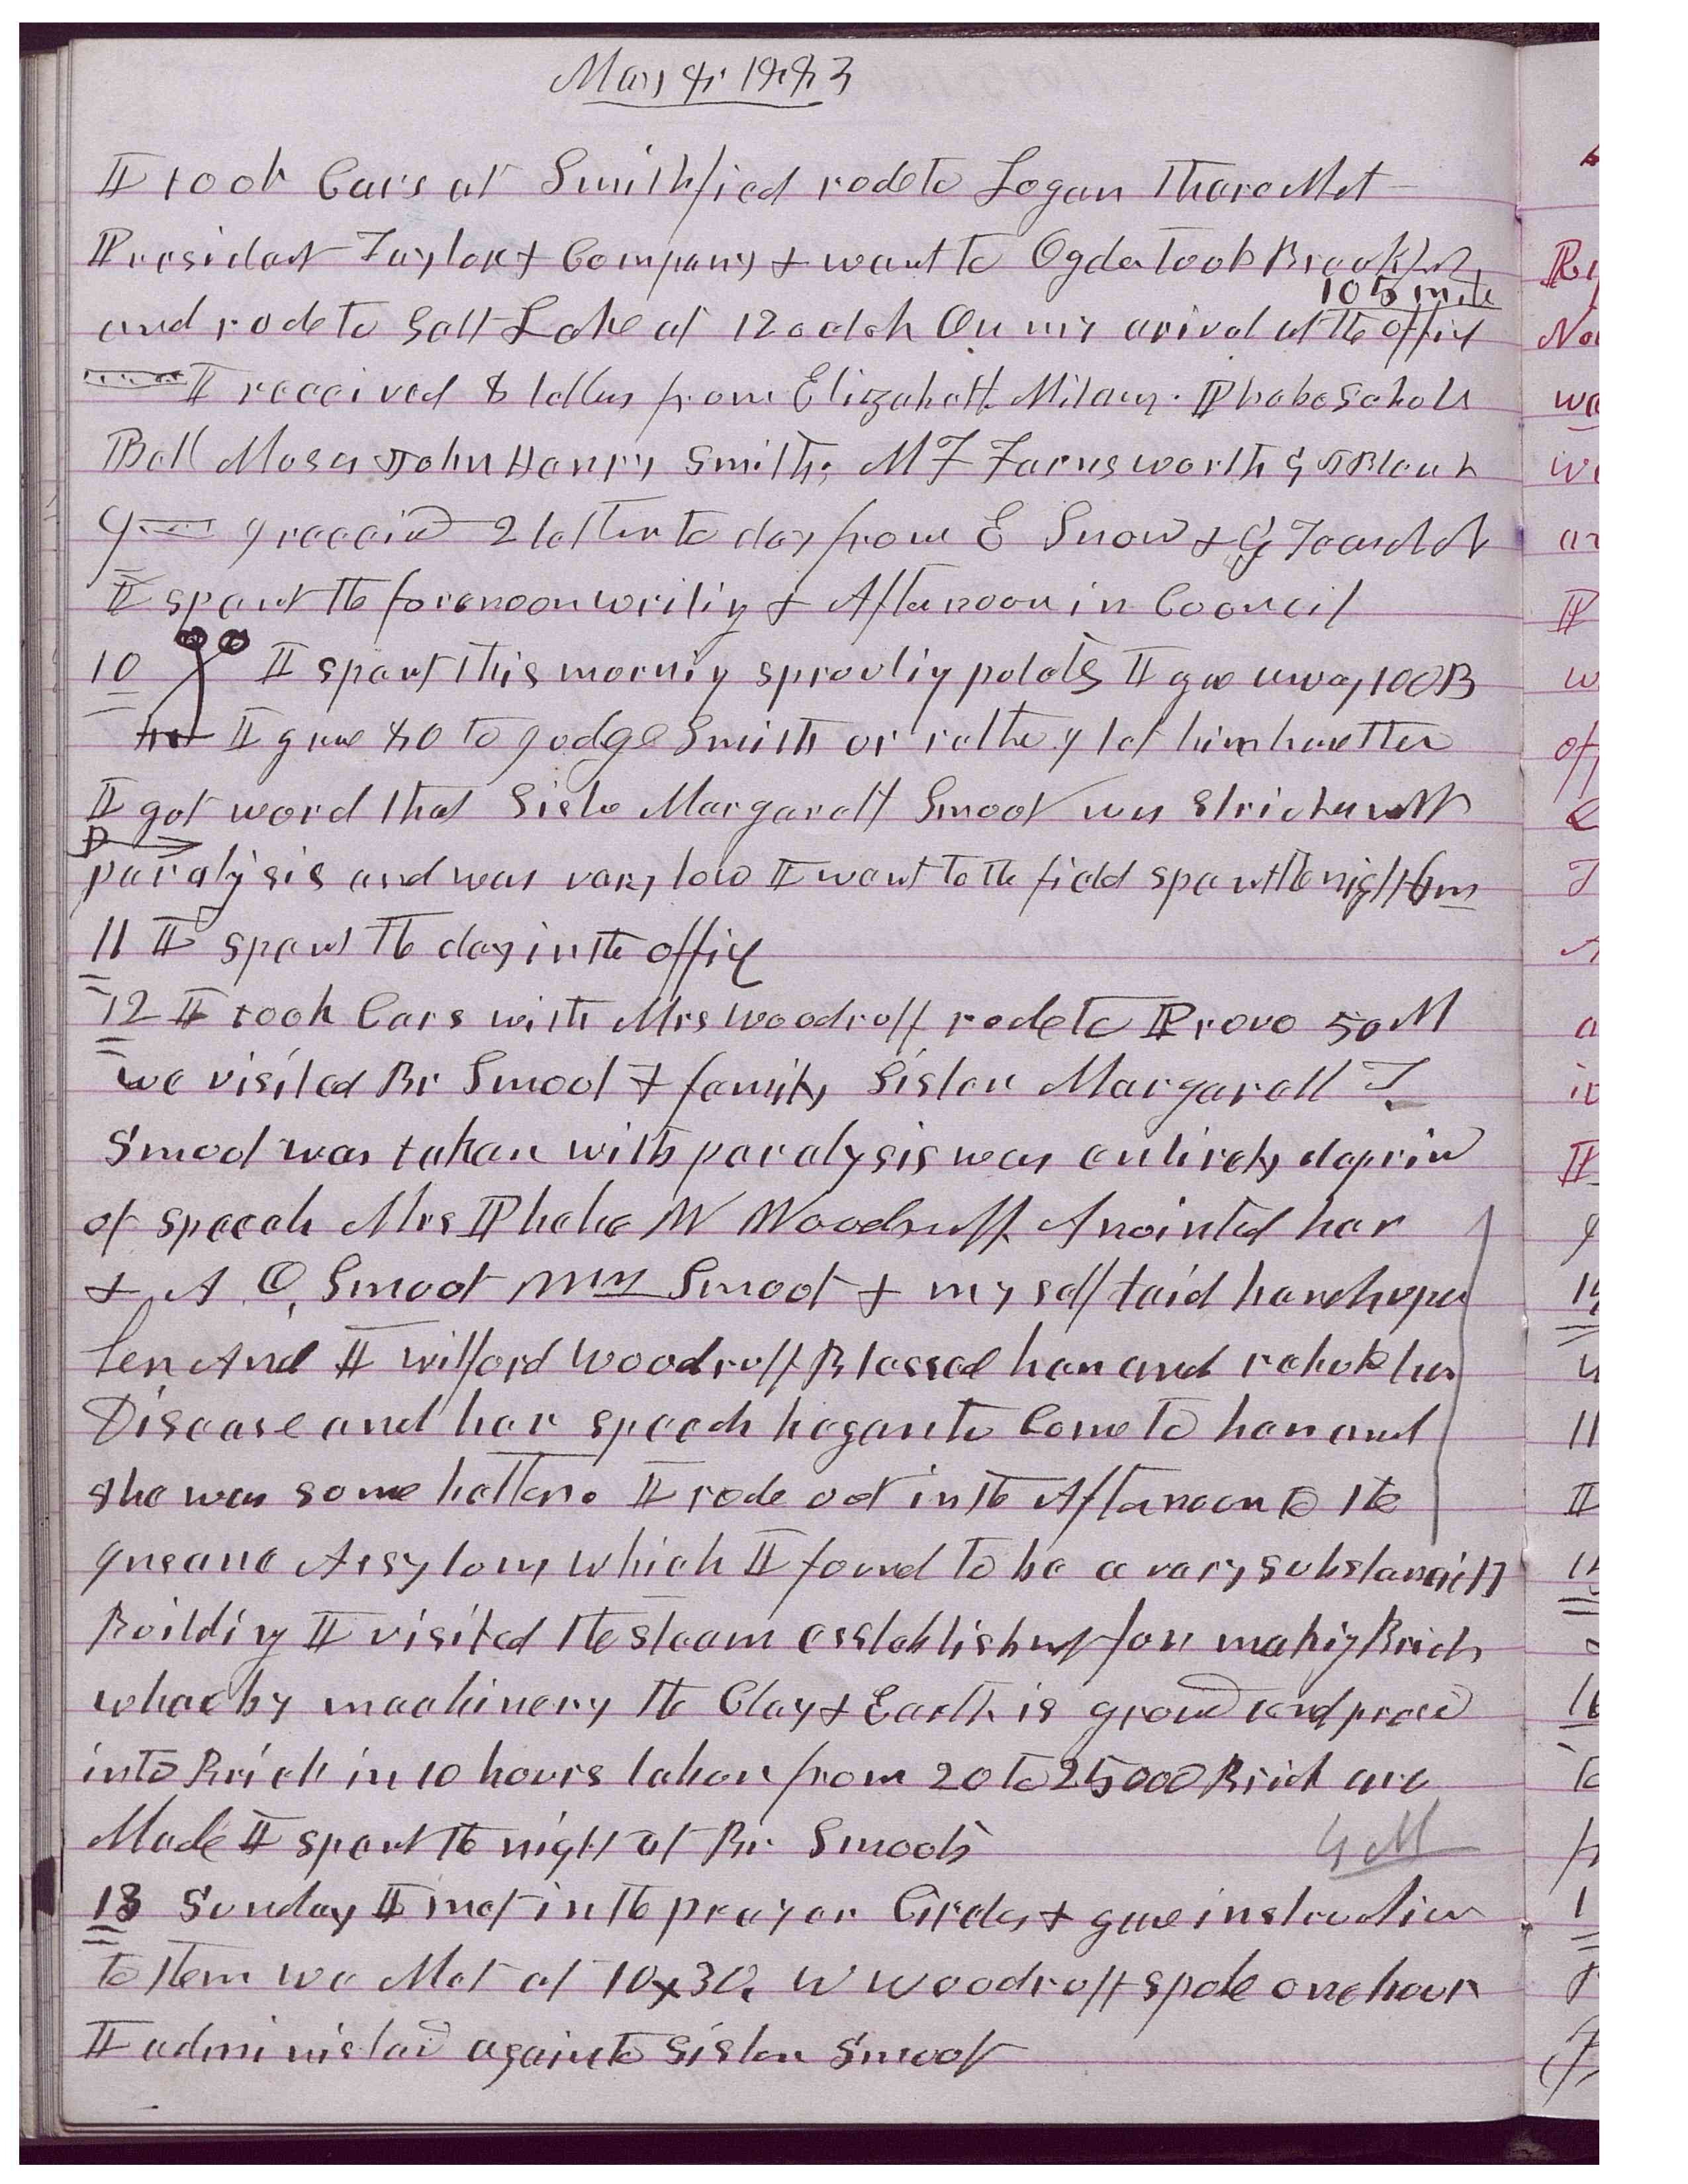 May 8, 1883
I took Cars at Smithfied rode to Logan Thare Met
President Taylor & Company & went to Ogden took Breakfast
105 mile
and rode to Salt Lake at 12 oclok On my arival at the office
I received 8 letters from Elizabeth Milam. Phebe Scholes
Bell Moses John Henry Smith, M F Farnsworth
9 I receivd 2 letters to day from E Snow & G Teasdel
I spent the forenoon writing & Afternoon in Council
10 I spent this morning sprouting potatos I gave away 100 B
I gave 80 to Judge Smith or rather let him have them
I got word that Sister Margarett Smoot was Stricken with
paralysis and was very low I went to the field spent the night 6 m
11 I spent the day in the office
12 I took Cars with Mrs Woodruff rode to Provo 50 M
we visited Br Smoot & family Sister Margarett T
Smoot was taken with paralysis was entirely deprivd
of speech Mrs Phebe W Woodruff Anointed her
& A O, Smoot Wm Smoot & myself laid hands upon
her And I Wilford Woodruff Blessed her and rebuked her
Disease and her speech began to Come to her and
she was some better. I rode out in the Afternoon to the
Insane Assylom which I found to be a very substancial
Building I visited the steam esstablishmet for making Brick
whareby machinery the Clay & Earth is ground and pressd
into Brick in 10 hours labor from 20 to 25000 Brick are
Made I spent the night at Br Smoots 4 M
13 Sunday I met in the prayer Circles & gave instruction
to them We Met at 10x30. W Woodruff spoke one hour
I administerd again to Sister Smoot